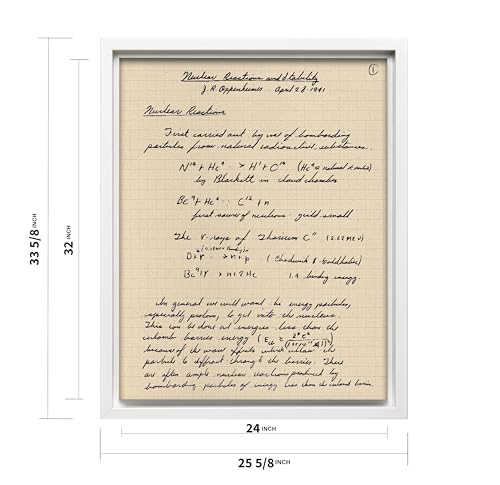 Nuclear Reactions and Stability
1
J. R. Oppenheimer April 28 1941
Nuclear Reactions
First carried out by use of bombarding
particles from natural radioactive substances.
N¹⁴ + He⁴ -> H¹ + O¹⁷ (He⁴ = natural α rays)
by Blackett in cloud chamber
Be⁹ + He⁴ : C¹² + n
first source of neutrons - yield small
The γ-rays of "Thorium C" (2.62 MeV)
D + γ -> n + p (Chadwick & Goldhaber)
Be⁹ + γ -> n + 2 He binding energy.
In general we will want hi energy particles,
especially protons, to get into the nucleus.
This can be done at energies less than the
coulomb barrier energy
because of the wave effects which allow the
particle to diffract through the barrier. There
are often ample nuclear reactions produced by
bombarding particles of energy less than the coulomb barrier.
33 5/8 INCH
32 INCH
24 INCH
25 5/8 INCH